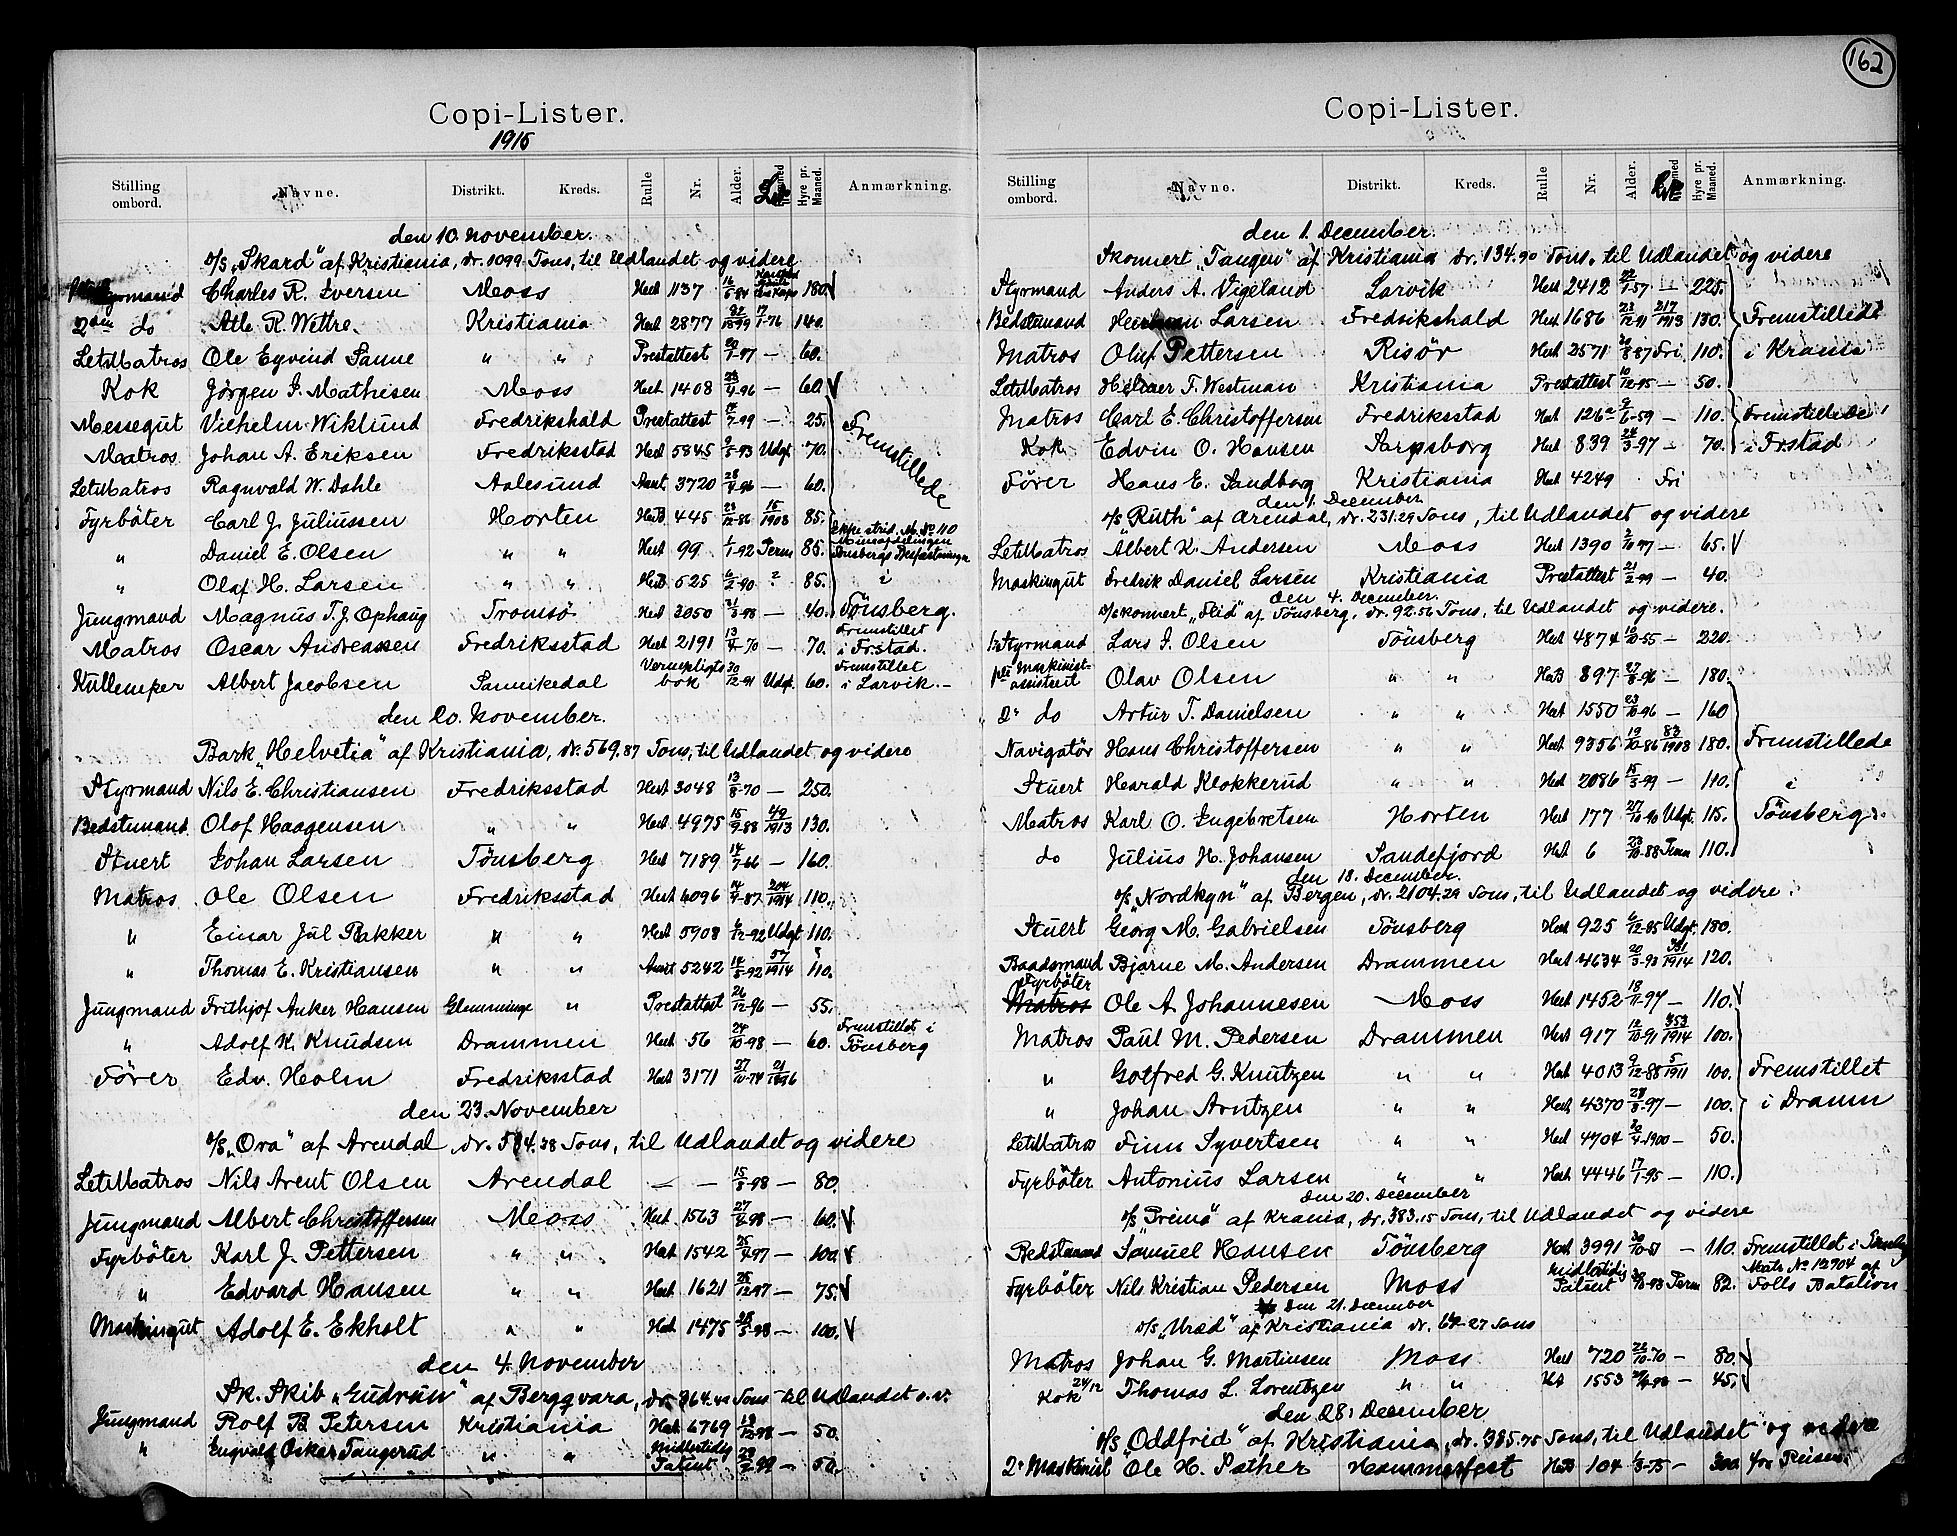 162
Copi-Lister.
1915
Stilling ombord. Navne. Distrikt. Kreds. Rulle Nr. Alder. Hyre pr. Maaned. Anmærkning.
den 10. November.
D/S „Skard“ af Kristiania, dr. 1099 Tons, til Udlandet og videre
Styrmand Charles R. Iversen Moss Hert 1137 180.
2den do Atle R. Wettre Kristiania Hert 2877 7/1-76 140.
LetMatros Ole Eyvind Sanne " " Prestattest 20/1-97 — 60.
Kok Jørgen I. Mathisen Moss Hert 1408 23/4-96 — 60.
Messegut Vilhelm Wiklund Fredrikshald Prestattest 14/7-99 — 25.
Matros Johan A. Eriksen Fredriksstad Hert 5845 9/5-93 Udgt. 70.
LetMatros Ragnvald W. Dahle Aalesund Anvt 3720 28/4-96 — 60. Fremstillede
Fyrböter Carl J. Juliussen Horten HertB 445 23/12-86 15/1908 85.
" Daniel E. Olsen " " Hert 99 1/1-92 Perm 85.
" Olaf H. Larsen " " HertB 525 6/2-90 ? 85. i
Jungmand Magnus T. J. Ophaug Tromsö Hert 3050 31/3-98 — 40. Tönsberg.
Matros Oscar Andreassen Fredriksstad Hert 2191 13/4-70 — 70. Fremstillet i Fr.stad.
Kullemper Albert Jacobsen Sannikedal Vernepligtsbok 30/12-91 Udgt. 60. Fremstillet i Larvik.—
den 20. November.
Bark „Helvetia“ af Kristiania, dr. 569.87 Tons, til Udlandet og videre
Styrmand Nils E. Christiansen Fredriksstad Hert 3048 13/8-70 — 250.
Bedstemand Olof Haagensen " " Hert 4975 15/9-88 49/1913 130.
Stuert Johan Larsen Tönsberg Hert 7189 14/7-66 — 160.
Matros Ole Olsen Fredriksstad Hert 4096 14/4-87 204/1914 110.
" Einar Jul Bakker " " Hert 5908 6/12-92 Udgt 110.
" Thomas E. Kristiansen " " Anvt 5242 14/5-92 57/1914 110.
Jungmand Frithjof Anker Hansen Glemminge " Prestattest 26/12-96 — 55.
" Adolf K. Knudsen Drammen Hert 56 24/10-98 — 60. Fremstillet i Tönsberg
Förer Edv. Holm Fredriksstad Hert 3171 27/10-74 21/1896
den 23. November
D/S „Ora“ af Arendal, dr. 584.38 Tons, til Udlandet og videre
LetMatros Nils Arent Olsen Arendal — — 15/8-98 — 80.
Jungmand Albert Christoffersen Moss Hert 1563 27/6-98 — 60.
Fyrböter Karl J. Pettersen " " Hert 1542 25/4-97 — 100.
" Edvard Hansen " " Hert 1621 25/12-97 — 75.
Maskingut Adolf E. Ekholt " " Hert 1475 28/5-98 — 100.
den 4. November
Sk. Skib „Gudrun“ af Bergqvara, dr. 364.44 Tons til Udlandet o.v.
Jungmand Rolf B. Petersen Kristiania Hert 6769 13/12-98 — 50.
" Engvald Oskar Tangerud " " Midlertidig Patent 28/2-99 — 50.
Copi-Lister.
Stilling ombord. Navne. Distrikt. Kreds. Rulle Nr. Alder. Hyre pr. Maaned. Anmærkning.
den 1. December.
Skonnert „Tangen“ af Kristiania dr. 134.90 Tons, til Udlandet og videre
Styrmand Anders A. Vigeland Larvik Hert 2412 22/1-57 — 225.
Bedstemand Herman Larsen Fredrikshald Hert 1686 23/12-91 217/1913 130. Fremstillede
Matros Oluf Pettersen Risör Hert 2571 20/8-87 Fri 110. i Krania
LetMatros Hilmer T. Westman Kristiania Prestattest 10/12-95 — 50.
Matros Carl E. Christoffersen Fredriksstad Hert 1262 9/6-59 — 110. Fremstillede
Kok Edvin O. Hansen Sarpsborg Hert 839 24/3-97 — 70. i Fr.stad
Förer Hans E. Sandborg Kristiania Hert 4249 Fri
den 1. December
D/S „Ruth“ af Arendal, dr. 231.29 Tons, til Udlandet og videre
LetMatros Albert K. Andersen Moss Hert 1390 2/10-77 — 65.
Maskingut Fredrik Daniel Larsen Kristiania Prestattest 21/2-99 — 40.
den 4. December.
D/Skonnert „Flid“ af Tönsberg, dr. 92.56 Tons, til Udlandet og videre.
1ste Styrmand Lars I. Olsen Tönsberg Hert 4874 12/10-55 — 220.
1ste Maskinistassistent Olav Olsen " " HertB 897 27/8-96 — 180.
2. do Artur T. Danielsen " " Hert 1550 23/10-96 — 160
Navigatör Hans Christoffersen " " Hert 9356 19/10-86 83/1908 180. Fremstillede
Stuert Harald Klokkerud " " Hert 2086 15/3-99 — 110. i
Matros Karl O. Ingebretsen Horten Hert 177 27/10-90 Udgt. 115. Tönsberg.
do Julius H. Johansen Sandefjord Hert 6 23/10-88 Perm 110.
den 18. December.
D/S „Nordkyn“ af Bergen, dr. 2104.29 Tons, til Udlandet og videre.
Stuert Georg M. Gabrielsen Tönsberg Hert 925 6/12-85 Udgt. 180.
Baadsmand Bjarne M. Andersen Drammen Hert 4634 20/3-93 331/1914 120.
Fyrböter Matros Ole A. Johannesen Moss Hert 1452 18/11-97 — 110.
Matros Paul M. Pedersen Drammen Hert 917 12/10-91 353/1914 100.
" Gotfred G. Knutzen " " Hert 4013 9/12-88 5/1911 100. Fremstillet
" Johan Arntzen " " Hert 4370 28/3-97 — 100. i Dramn
LetMatros Finn Syvertsen " " Hert 4704 20/4-1900 — 50.
Fyrböter Antonius Larsen " " Hert 4446 17/1-95 — 110.
den 20. December
D/S „Primo“ af Krania, dr. 383.15 Tons, til Udlandet og videre
Bedstemand Samuel Hansen Tönsberg Hert 3991 30/10-51 — 110. Fremstillet i
Fyrböter Nils Kristian Pedersen Moss Midlertidig Patent Perm 82. Mats No 12904 af Folls Batalion
den 21. December
D/S „Uræd“ af Kristiania dr. 64-27 Tons
Matros Johan G. Martinsen Moss Hert 720 22/10-70 — 80.
Kok 24/12 Thomas L. Lorentzen " " Hert 1553 45.
den 28. December
D/S „Oddfrid“ af Kristiania, dr. 385.75 Tons, til Udlandet og videre
2. Maskinist Ole H. Sather Hammerfest HertB 104 1/3-75 — 300. for Reisen.